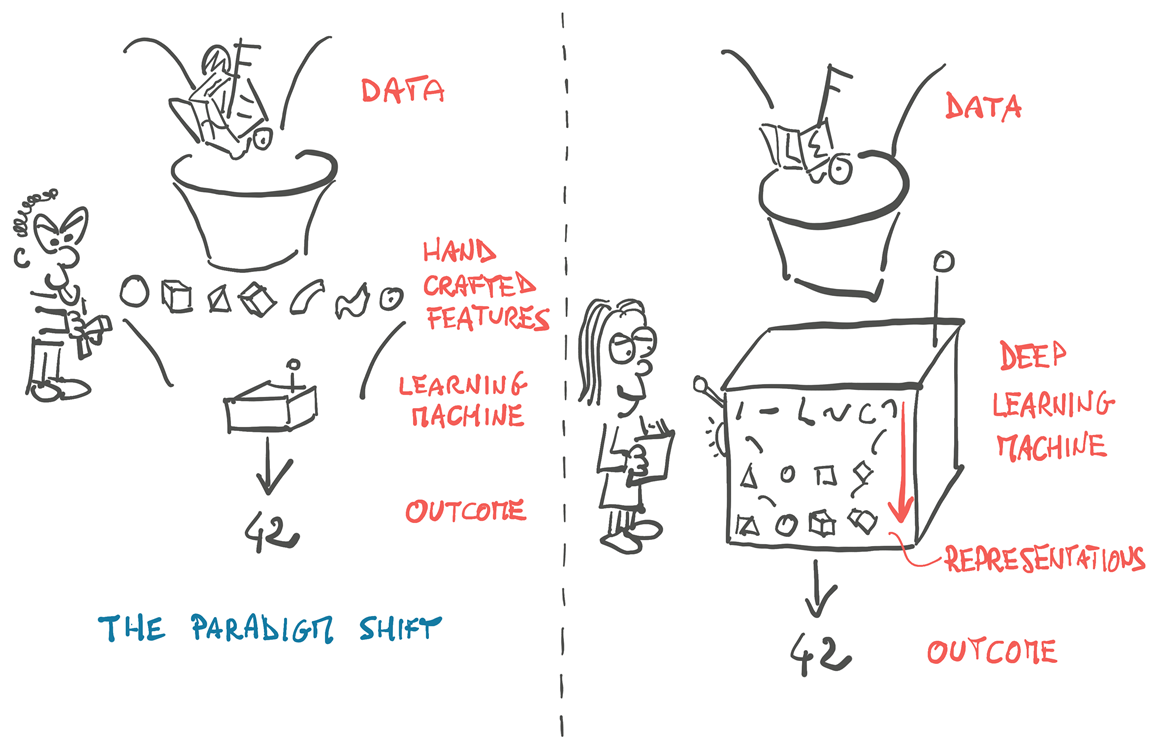 DATA
HAND
CRAFTED
FEATURES
LEARNING
MACHINE
OUTCOME
42
THE PARADIGM SHIFT
DATA
DEEP
LEARNING
MACHINE
REPRESENTATIONS
42
OUTCOME